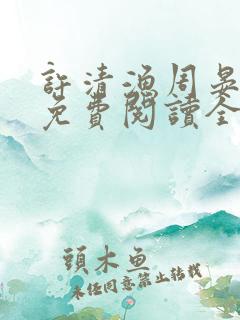 許清漁周晏
免費閱讀全
頭木鱼
未经同意禁止转载